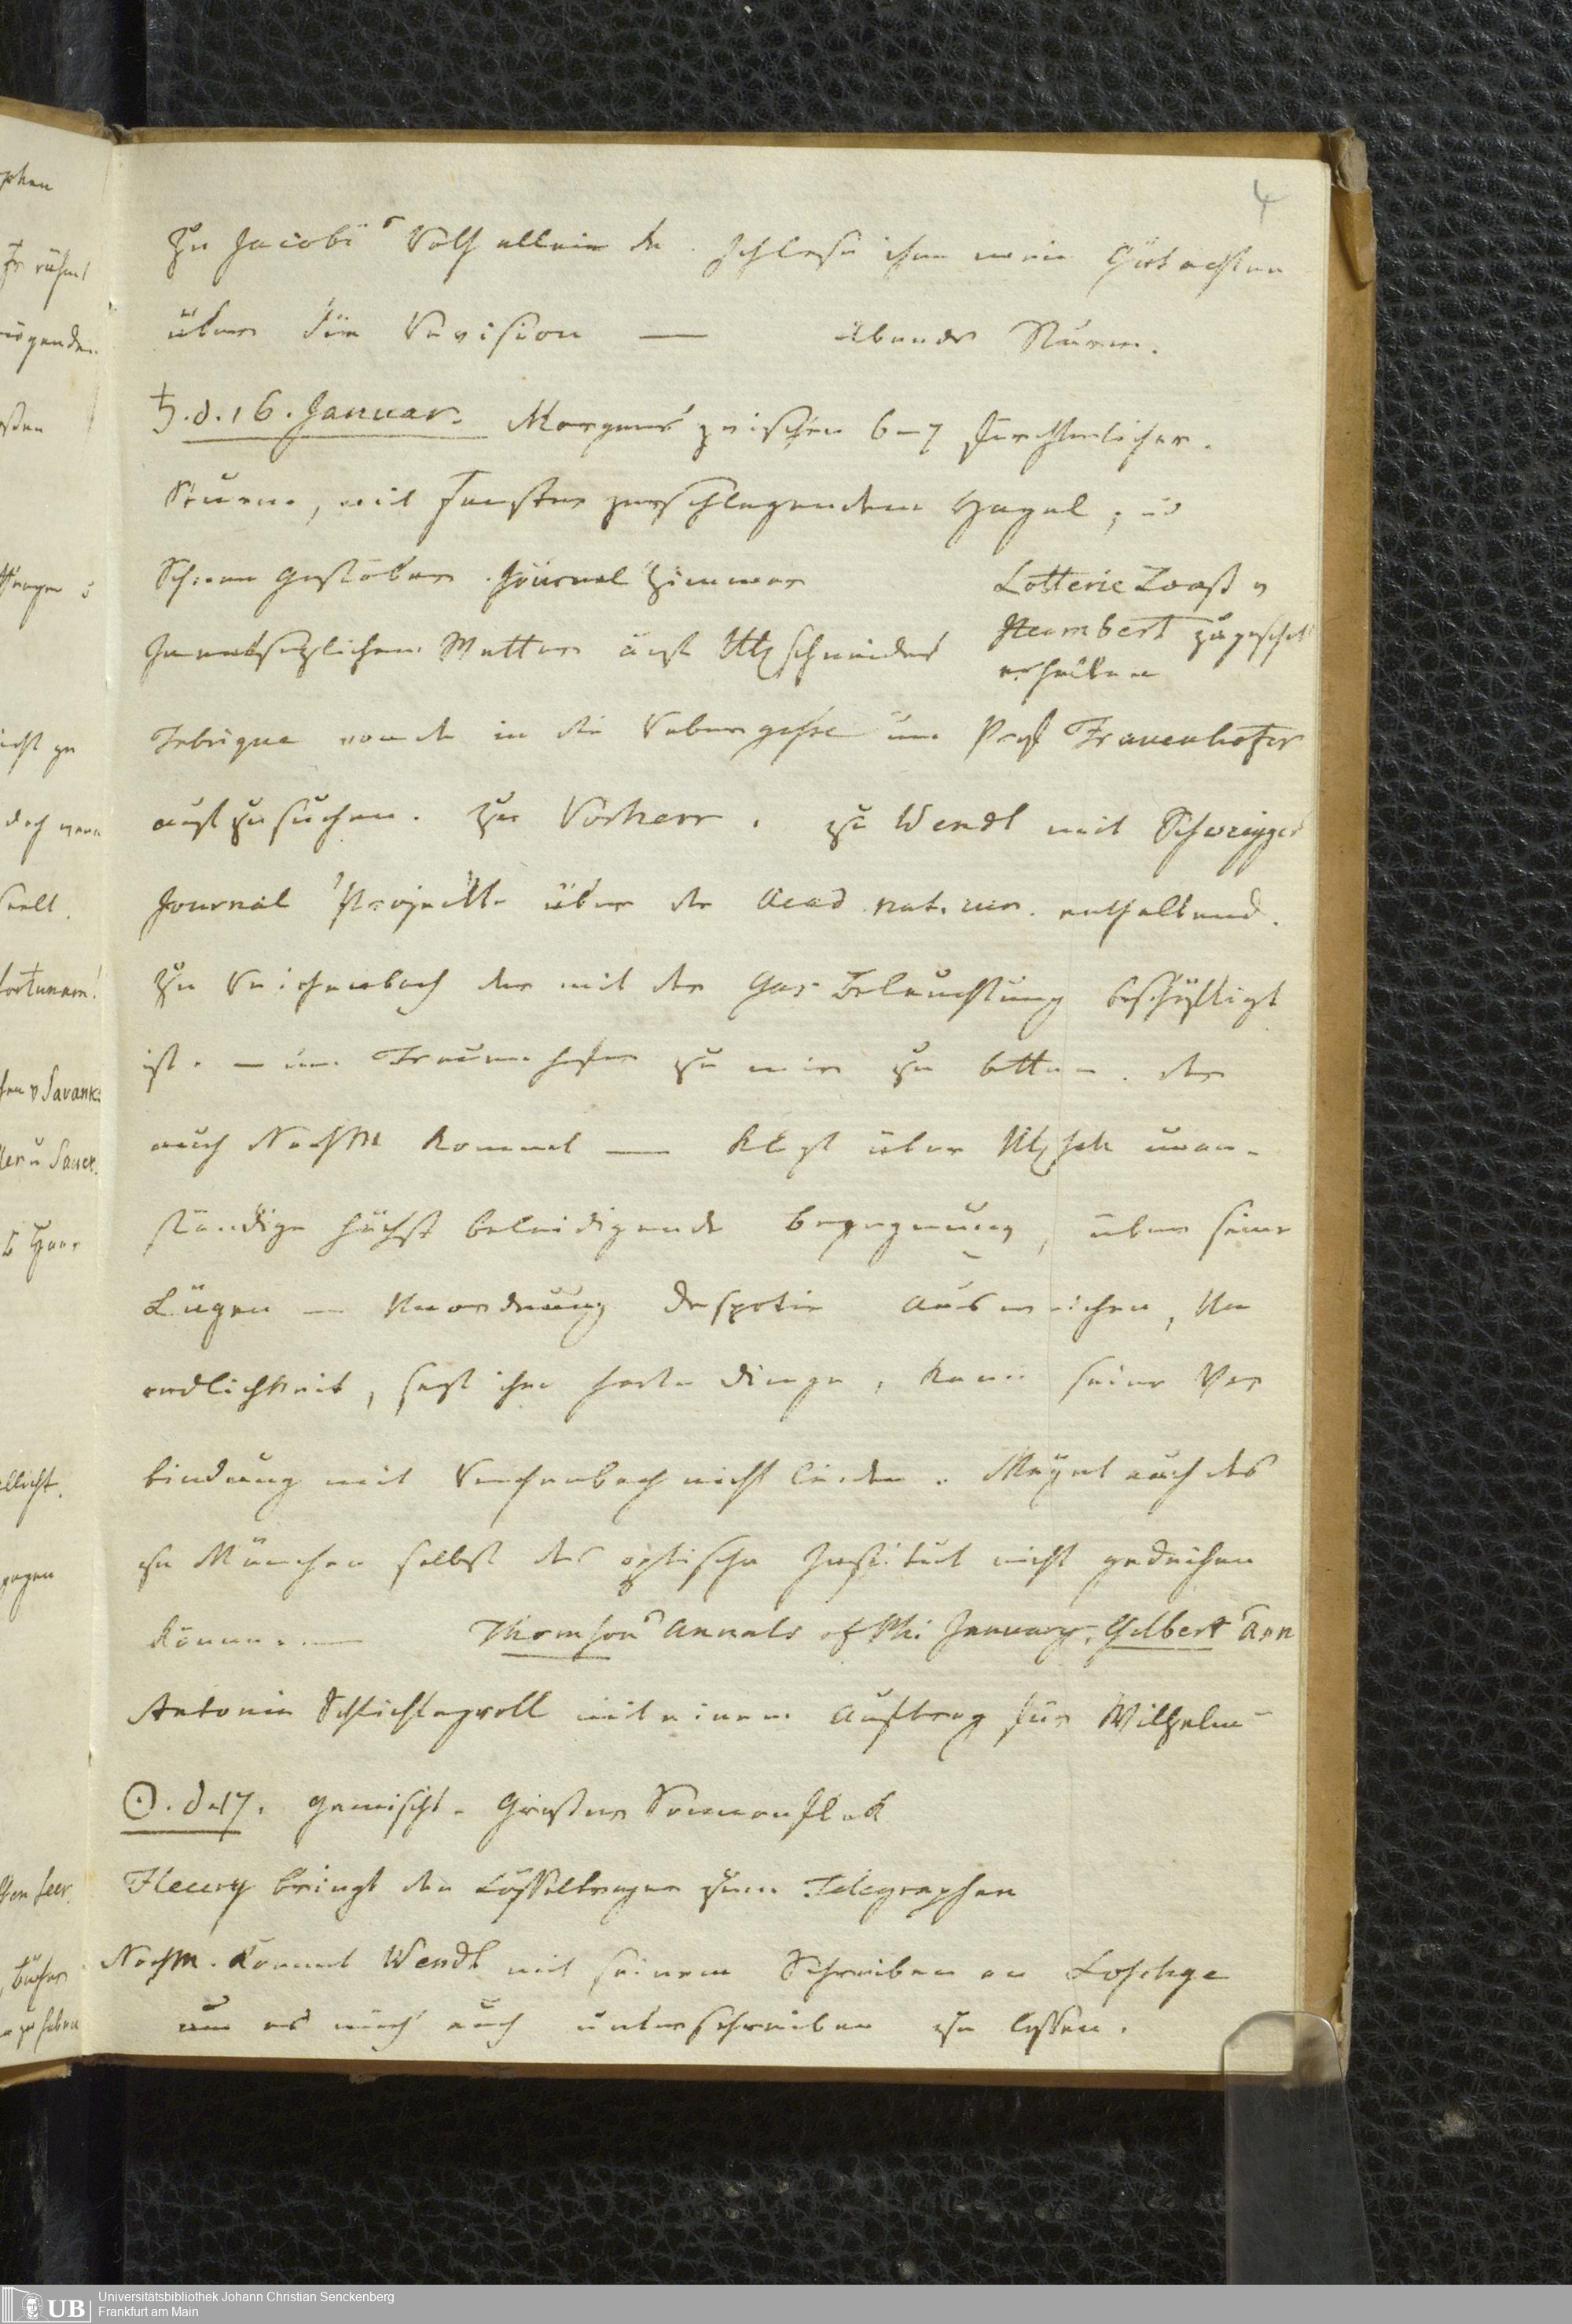 4
zu Jacobi's Roth allein da. Ich lese ihm mein Gutachten
über die Revision — Abends Sturm.
♄. d. 16. Januar. Morgens zwischen 6–7 fürchterlicher
Sturm, mit Fenster zerschlagendem Hagel, u
Schneegestöber. Journal Zimmer
Lotterie Looß v
Humbert zugeschickt
erhalten
In entsezlichem Wetter nach Utzschneiders
Fabrique von da in die um Prof Frauenhofer
aufzusuchen. Zu Vorherr. zu Wendt mit Schweiggers
Journal Projekte über die Acad. nat. cur. enthaltend.
Zu Reichenbach der mit der Gas Beleuchtung beschäftigt
ist. – um Frauenhofer zu mir zu bitten. der
auch NachM kommt — klagt über Utzsch unan-
ständige höchst beleidigende Begegnung, über seine
Lügen – Unordnung Despotie Ausweichen, Un
redlichkeit, sagt ihm harte Dinge, kann seine Ver
bindung mit Reichenbach nicht leiden. Meynt auch das
zu München selbst das optische Institut nicht gedeihen
könne. — Thomson's Annals of Phi January. Gilbert's Ann
Antonin Schlichtegroll mit einem Auftrag für Wilhelm
☉. d. 17. gemischt. Großer Sonnenfleck
Fleury bringt den zum Telegraphen
NachM. kommt Wendt mit seinem Schreiben an Loschge
um es mich auch unterschreiben zu lassen.
UB
Universitätsbibliothek Johann Christian Senckenberg
Frankfurt am Main